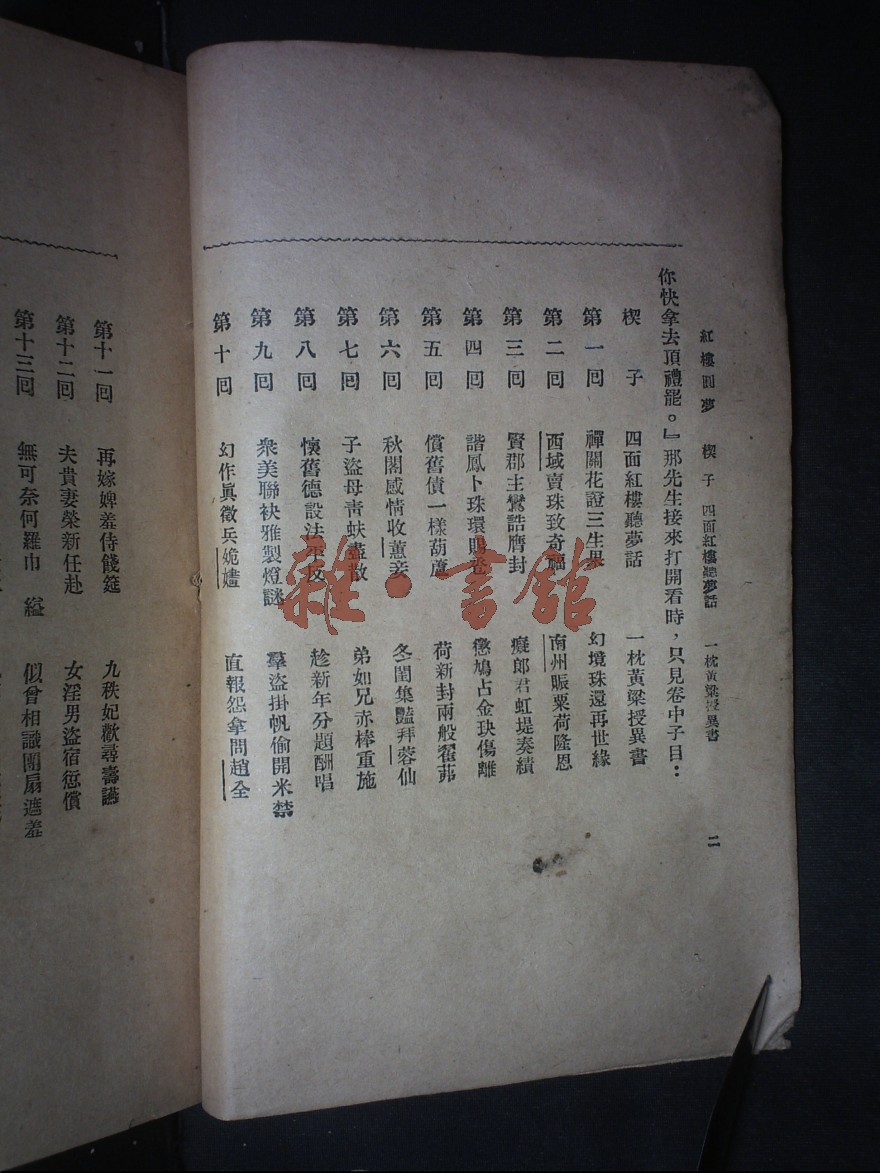 紅樓圓夢 楔子 四面紅樓聽夢話 一枕黃粱授異書 二
你快拿去頂禮罷。』那先生接來打開看時，只見卷中子目：
楔子 四面紅樓聽夢話 一枕黃粱授異書
第一回 禪關花證三生果 幻境珠還再世緣
第二回 西域賣珠致奇禍 南州賑粟荷隆恩
第三回 賢郡主鸞誥膺封 癡郎君虹堤奏績
第四回 諧鳳卜珠環賜卺 懲鳩占金玦傷離
第五回 償舊債一樣葫蘆 荷新封兩般翟茀
第六回 秋閣感情收蕙妾 冬閨集豔拜蓉仙
第七回 子盜母靑蚨盡散 弟如兄赤棒重施
第八回 懷舊德設法平反 趁新年分題酬唱
第九回 衆美聯袂雅製燈謎 羣盜掛帆偷開米禁
第十回 幻作眞徵兵姽嫿 直報怨拿問趙全
第十一回 再嫁婢羞侍餞筵 九秩妃歡尋壽讌
第十二回 夫貴妻榮新任赴 女淫男盜宿愆償
第十三回 無可奈何羅巾縊 似曾相識團扇遮羞
雜·書館